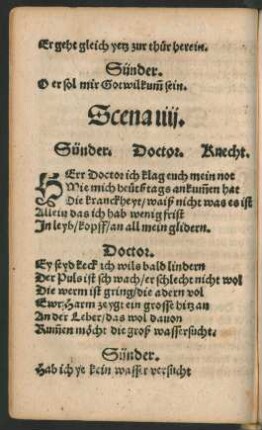 Er geht gleich yetz zur thür herein.
Sünder.
O er sol mir Gotwilkum̃ sein.
Scena iiij.
Sünder. Doctor. Knecht.
HErr Doctor ich klag euch mein not
Wie mich heütß tags ankum̃en hat
Die kranckheyt/ waiß nicht was es ist
Allein das ich hab wenig frist
In leyb/ kopff/ an all mein glidern.
Doctor.
Ey seyd keck ich wils bald lindern
Der Puls ist schwach/ er schlecht nicht wol
Die werm ist gring/ die adern vol
Ewr Harm zeygt ein grosse hitz an
An der Leber/ das wol dauon
Kum̃en möcht die groß wassersucht.
Sünder.
Hab ich ye kein wasser versucht